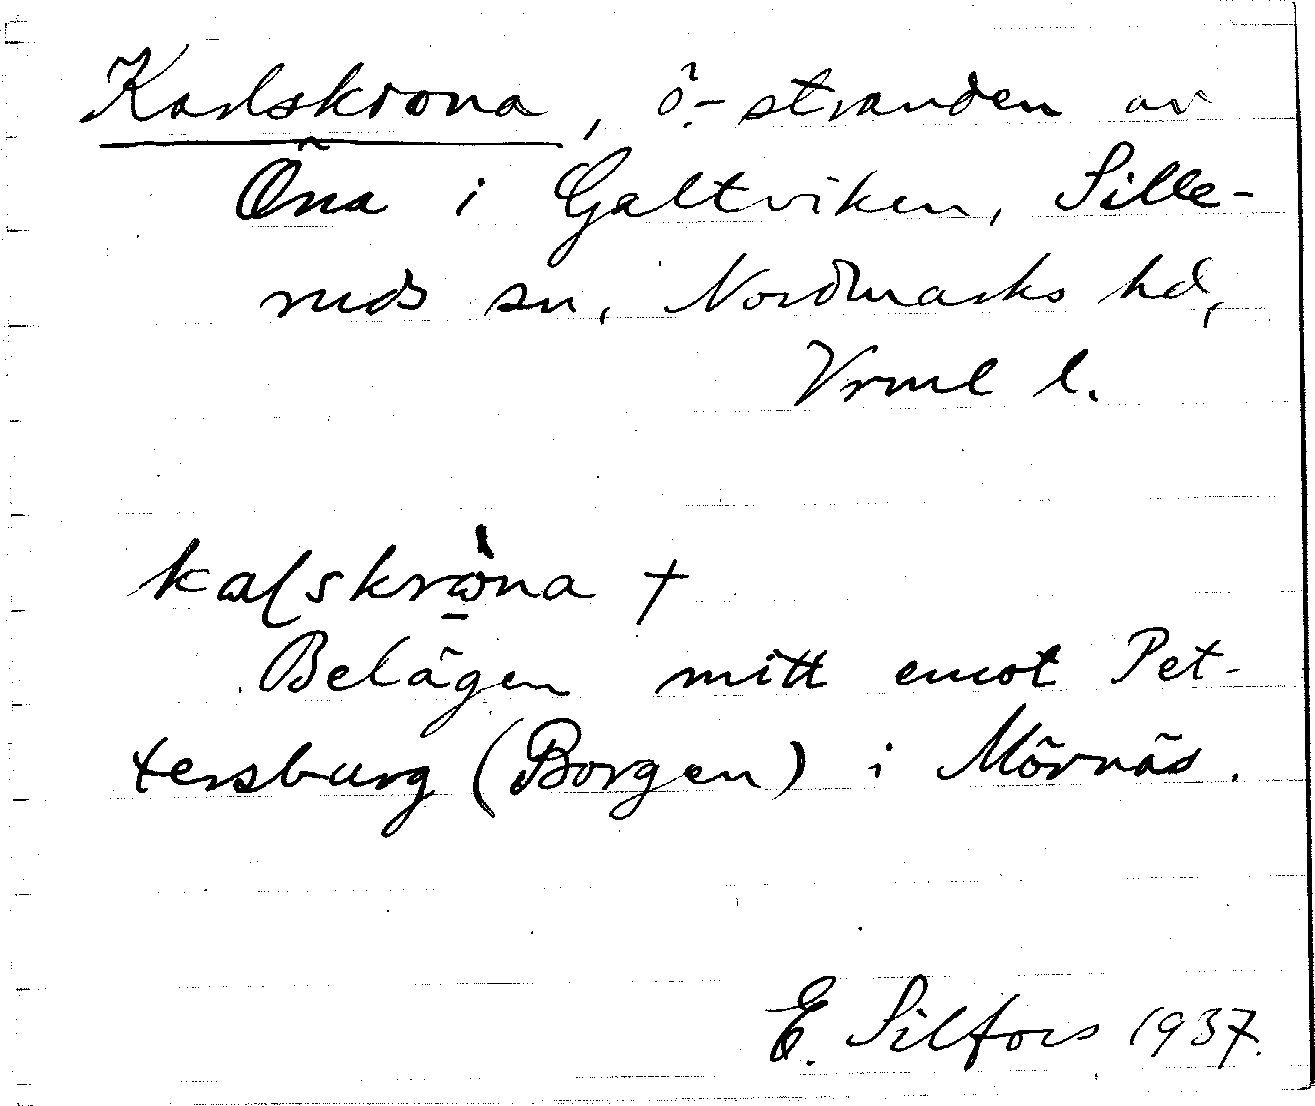 Karlskrona, ö.-stranden av
Öna i Galtviken, Sille-
ruds sn, Nordmarks hd,
Vrml l.
Belägen mitt emot Pet-
tersburg (Borgen) i Mörnäs.
E. Silfors 1937.